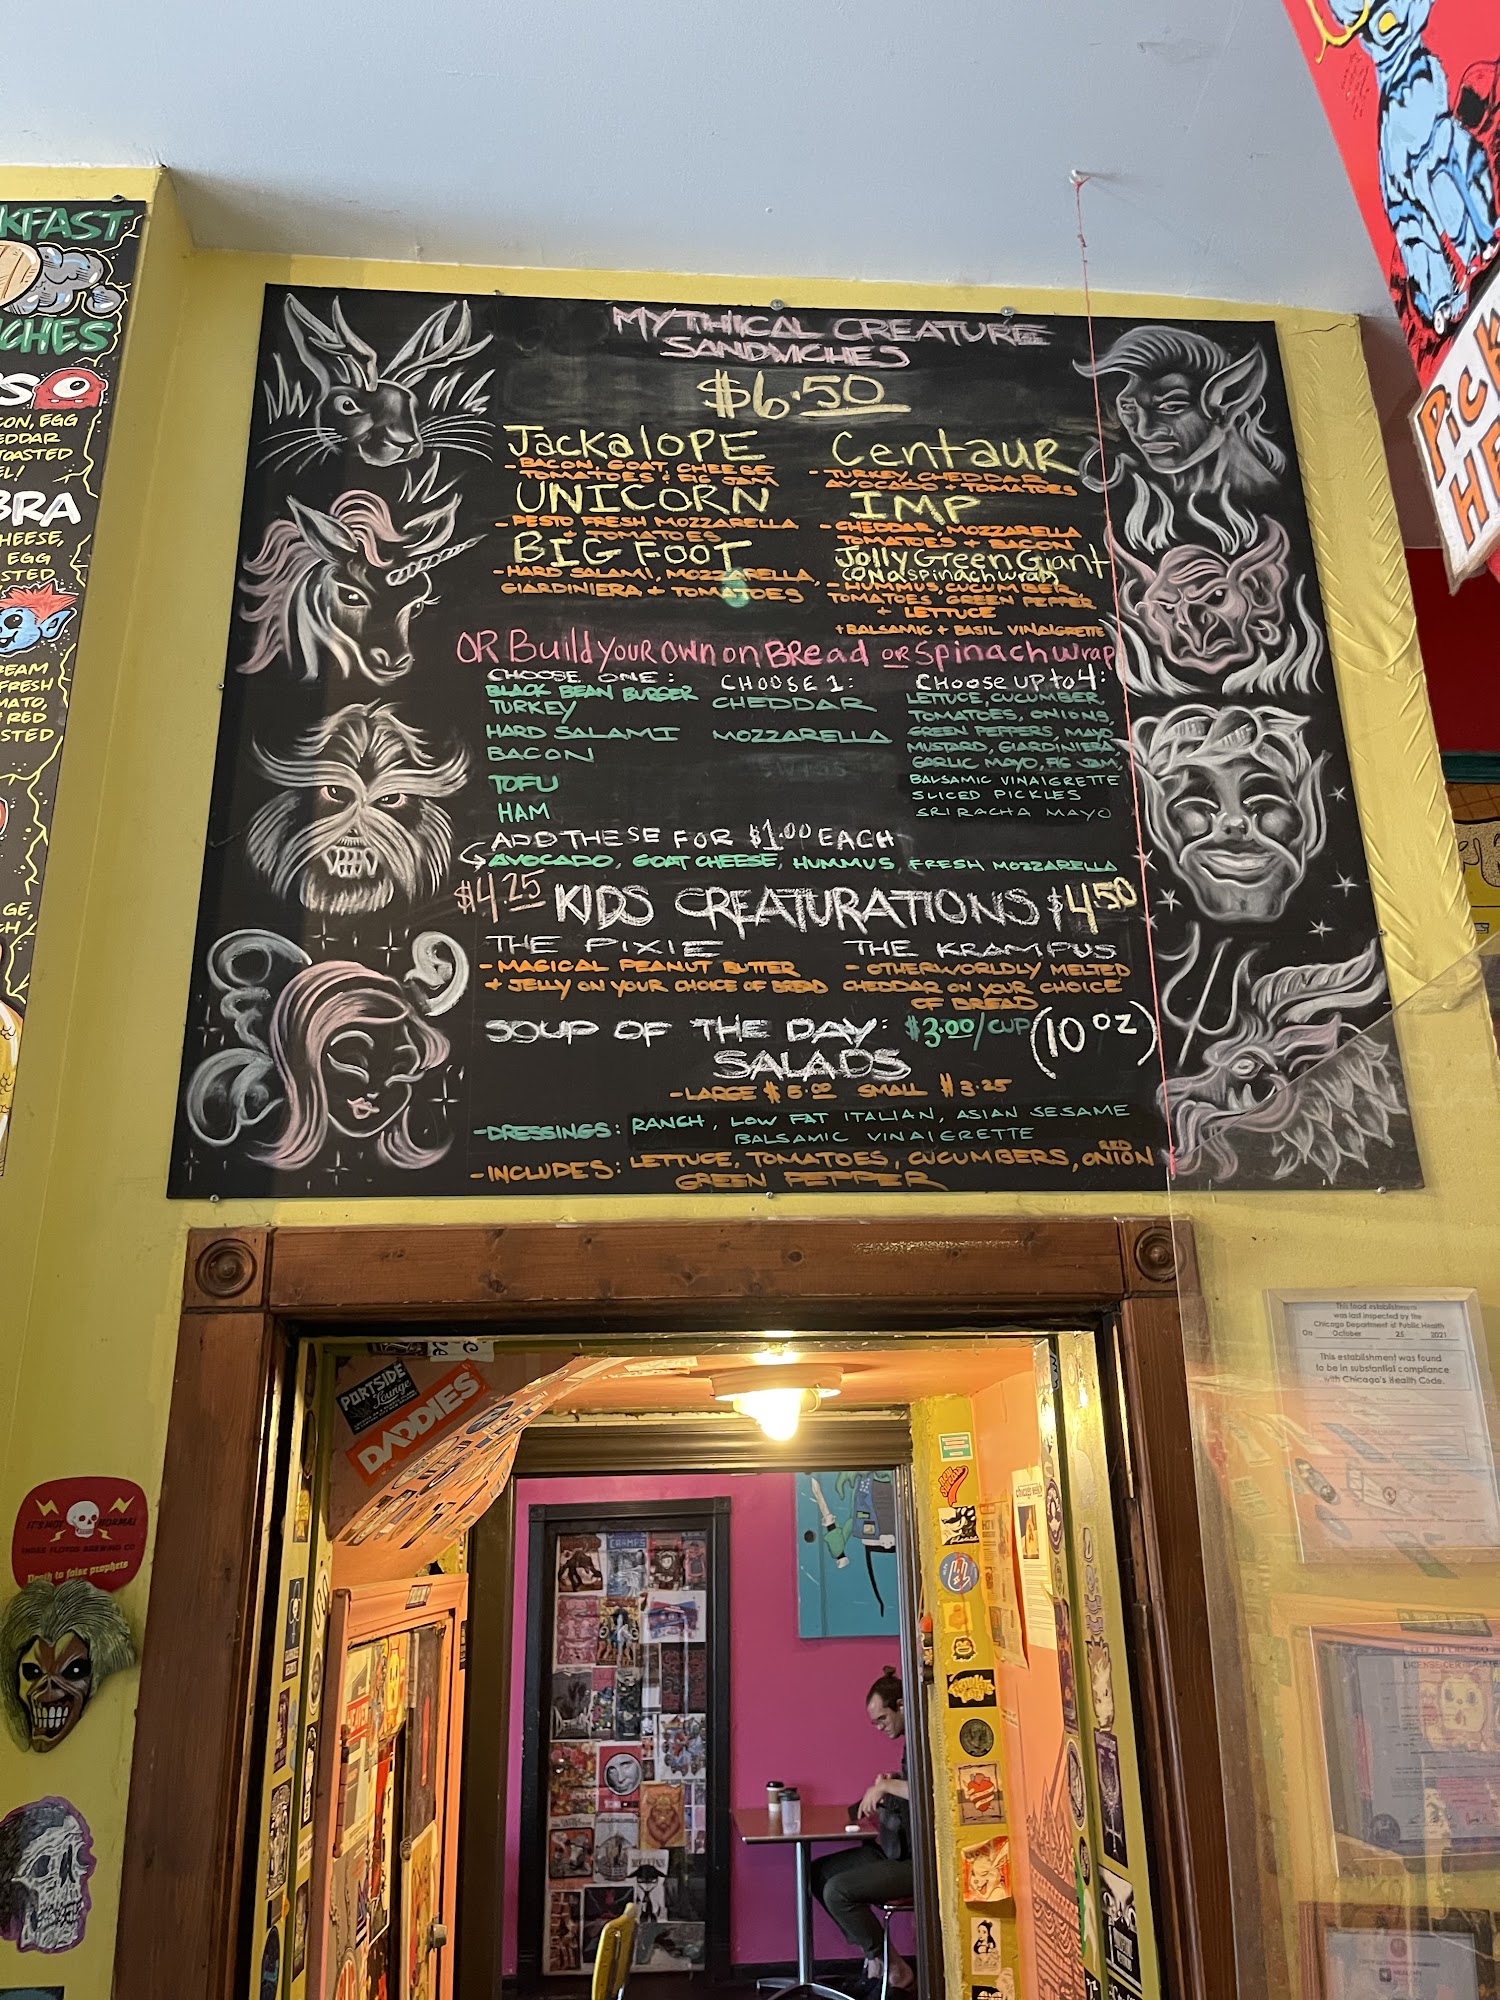 KFAST
CHES
CON, EGG
EDDAR
TOASTED
EL!
BRA
HEESE,
EGG
STED
BEAM
FRESH
MATO,
+ RED
STED
GE,
CH
MYTHICAL CREATURE
SANDWICHES
$6.50
Jackalope
- BACON, GOAT CHEESE
TOMATOES + FIG JAM
UNICORN
- PESTO FRESH MOZZARELLA
+ TOMATOES
BIG FOOT
- HARD SALAMI, MOZZARELLA,
GIARDINIERA + TOMATOES
Centaur
- TURKEY, CHEDDAR
AVOCADO + TOMATOES
IMP
- CHEDDAR, MOZZARELLA
TOMATOES + BACON
Jolly Green Giant
(ON a spinach wrap)
- HUMMUS, CUCUMBER,
TOMATOES GREEN PEPPER
+ LETTUCE
+ BALSAMIC + BASIL VINAIGRETTE
OR Build YOUR OWN on BRead OR Spinach wrap
CHOOSE ONE:
BLACK BEAN BURGER
TURKEY
HARD SALAMI
BACON
TOFU
HAM
CHOOSE 1:
CHEDDAR
MOZZARELLA
SWISS
CHOOSE UP to 4:
LETTUCE, CUCUMBER,
TOMATOES, ONIONS,
GREEN PEPPERS, MAYO
MUSTARD, GIARDINIERA,
GARLIC MAYO, FIG JAM,
BALSAMIC VINAIGRETTE
SLICED PICKLES
SRIRACHA MAYO
ADD THESE FOR $1.00 EACH
AVOCADO, GOAT CHEESE, HUMMUS, FRESH MOZZARELLA
$4.25 KIDS CREATURATIONS $4.50
THE PIXIE
- MAGICAL PEANUT BUTTER
+ JELLY ON YOUR CHOICE OF BREAD
THE KRAMPUS
- OTHERWORLDLY MELTED
CHEDDAR ON YOUR CHOICE
OF BREAD
SOUP OF THE DAY: $3.00/CUP (10 oz)
SALADS
- LARGE $5.00 SMALL $3.25
- DRESSINGS: RANCH, LOW FAT ITALIAN, ASIAN SESAME
BALSAMIC VINAIGRETTE
- INCLUDES: LETTUCE, TOMATOES, CUCUMBERS, RED ONION
GREEN PEPPER
PICK
This food establishment
was last inspected by the
Chicago Department of Public Health
On October 25 2021
This establishment was found
to be in substantial compliance
with Chicago's Health Code.
PORTSIDE
Lounge
DADDIES
IT'S NOT NORMAL
THREE FLOYDS BREWING CO
Death to false prophets
CRAMPS
CITY OF CHICAGO
LICENSE CERTIFICATE